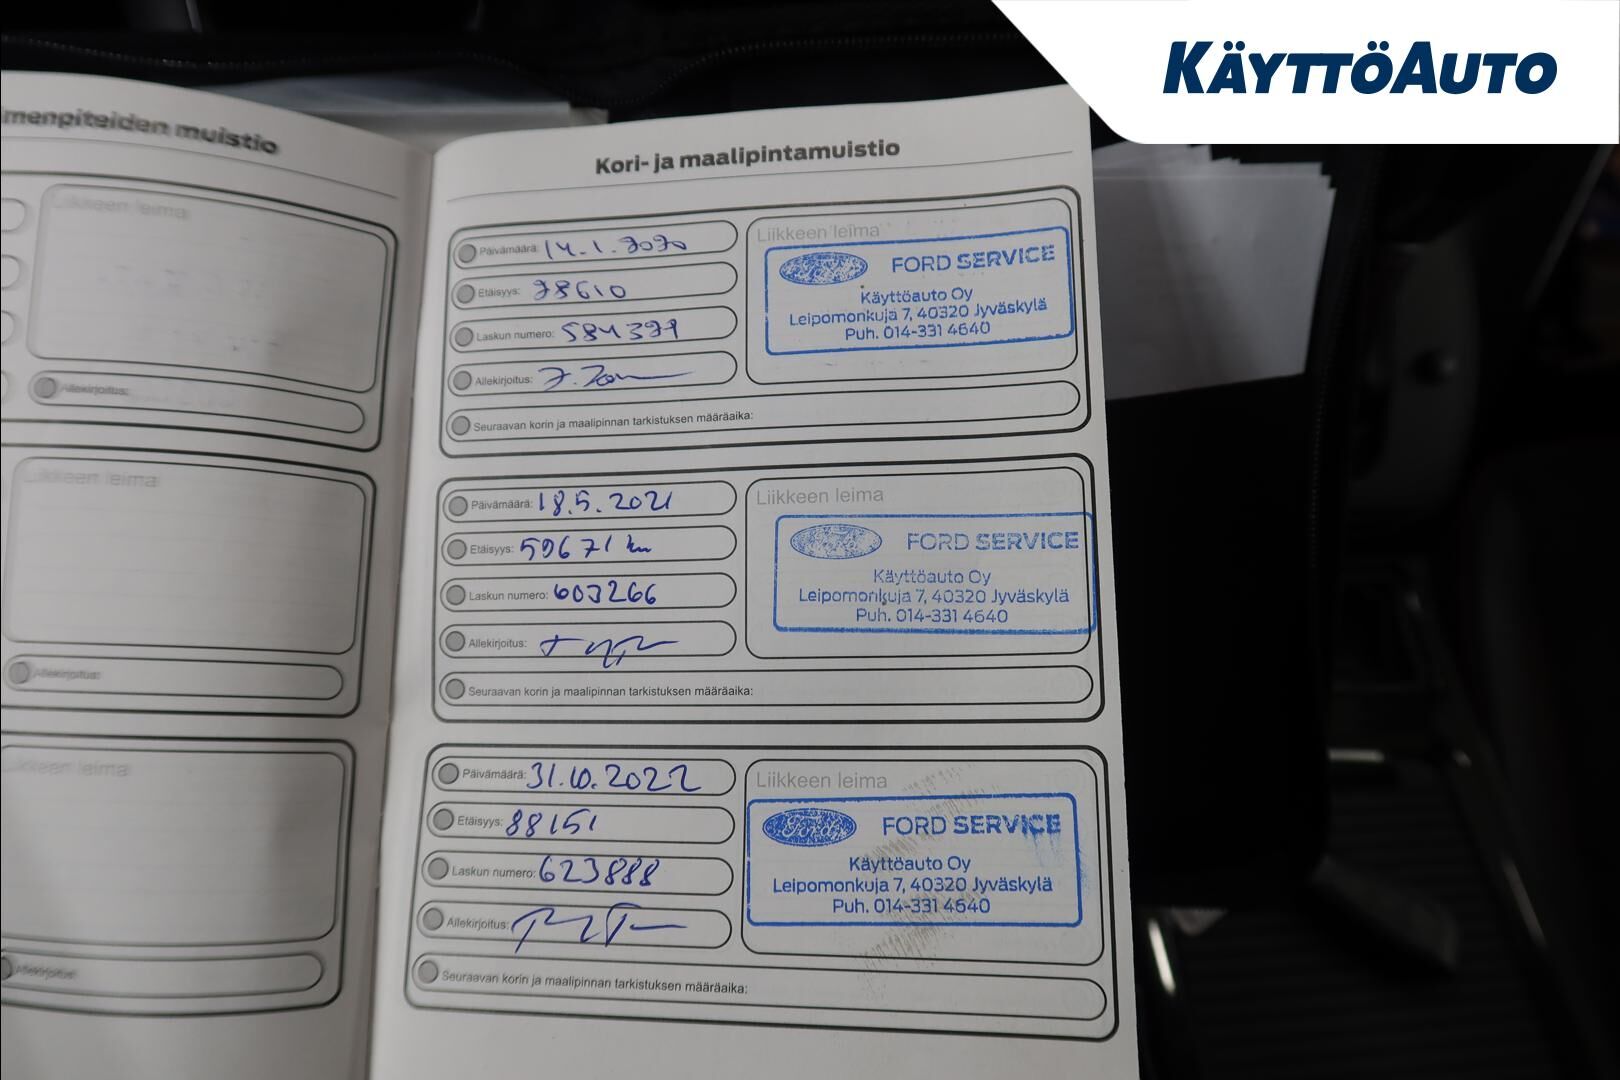 KÄYTTÖAUTO
menpiteiden muistio
Liikkeen leima
Allekirjoitus:
Liikkeen leima
Allekirjoitus:
Liikkeen leima
Allekirjoitus:
Kori- ja maalipintamuistio
Päivämäärä: 14.1.2020
Etäisyys: 28610
Laskun numero:
Allekirjoitus:
Seuraavan korin ja maalipinnan tarkistuksen määräaika:
Liikkeen leima
FORD SERVICE
Käyttöauto Oy
Leipomonkuja 7, 40320 Jyväskylä
Puh. 014-331 4640
Päivämäärä: 18.5.2021
Etäisyys: 59671 km
Laskun numero: 603266
Allekirjoitus:
Seuraavan korin ja maalipinnan tarkistuksen määräaika:
Liikkeen leima
FORD SERVICE
Käyttöauto Oy
Leipomonkuja 7, 40320 Jyväskylä
Puh. 014-331 4640
Päivämäärä: 31.10.2022
Etäisyys: 88151
Laskun numero: 623888
Allekirjoitus:
Seuraavan korin ja maalipinnan tarkistuksen määräaika:
Liikkeen leima
Ford
FORD SERVICE
Käyttöauto Oy
Leipomonkuja 7, 40320 Jyväskylä
Puh. 014-331 4640